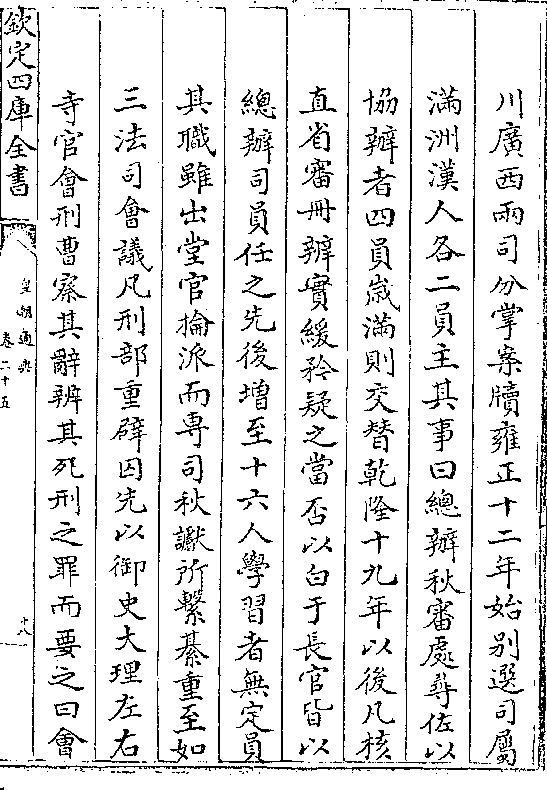 川廣西兩司分掌案牘雍正十二年始別選司屬
滿洲漢人各二員主其事曰總辦秋審處尋佐以
協辦者四員歳滿則交替乾隆十九年以後凡核
直省審冊辦實緩矜疑之當否以白于長官皆以
總辦司員任之先後增至十六人學習者無定員
其職雖出堂官掄派而専司秋讞所繫綦重至如
三法司會議凡刑部重辟囚先以御史大理左右
寺官會刑曹察其辭辨其死刑之罪而要之曰會
欽定四庫全書
皇朝通典
卷二十五
十八